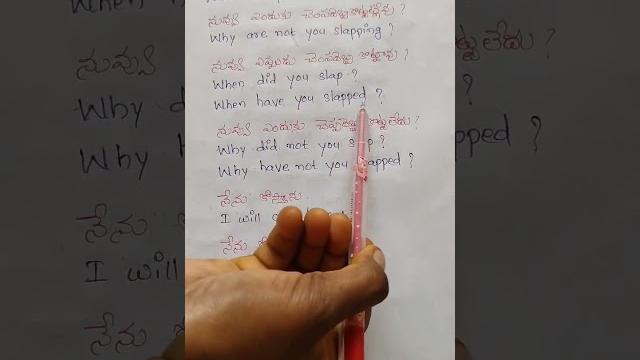 నువ్వు ఎందుకు చెంపదెబ్బ కొట్టట్లేవు ?
Why are not you slapping ?
నువ్వు ఎప్పుడు చెంపదెబ్బ కొట్టావు ?
When did you slap ?
When have you slapped ?
నువ్వు ఎందుకు కొట్టలేదు ?
Why did not you slap ?
Why have not you slapped ?
నేను కోస్తాను
I will
నేను